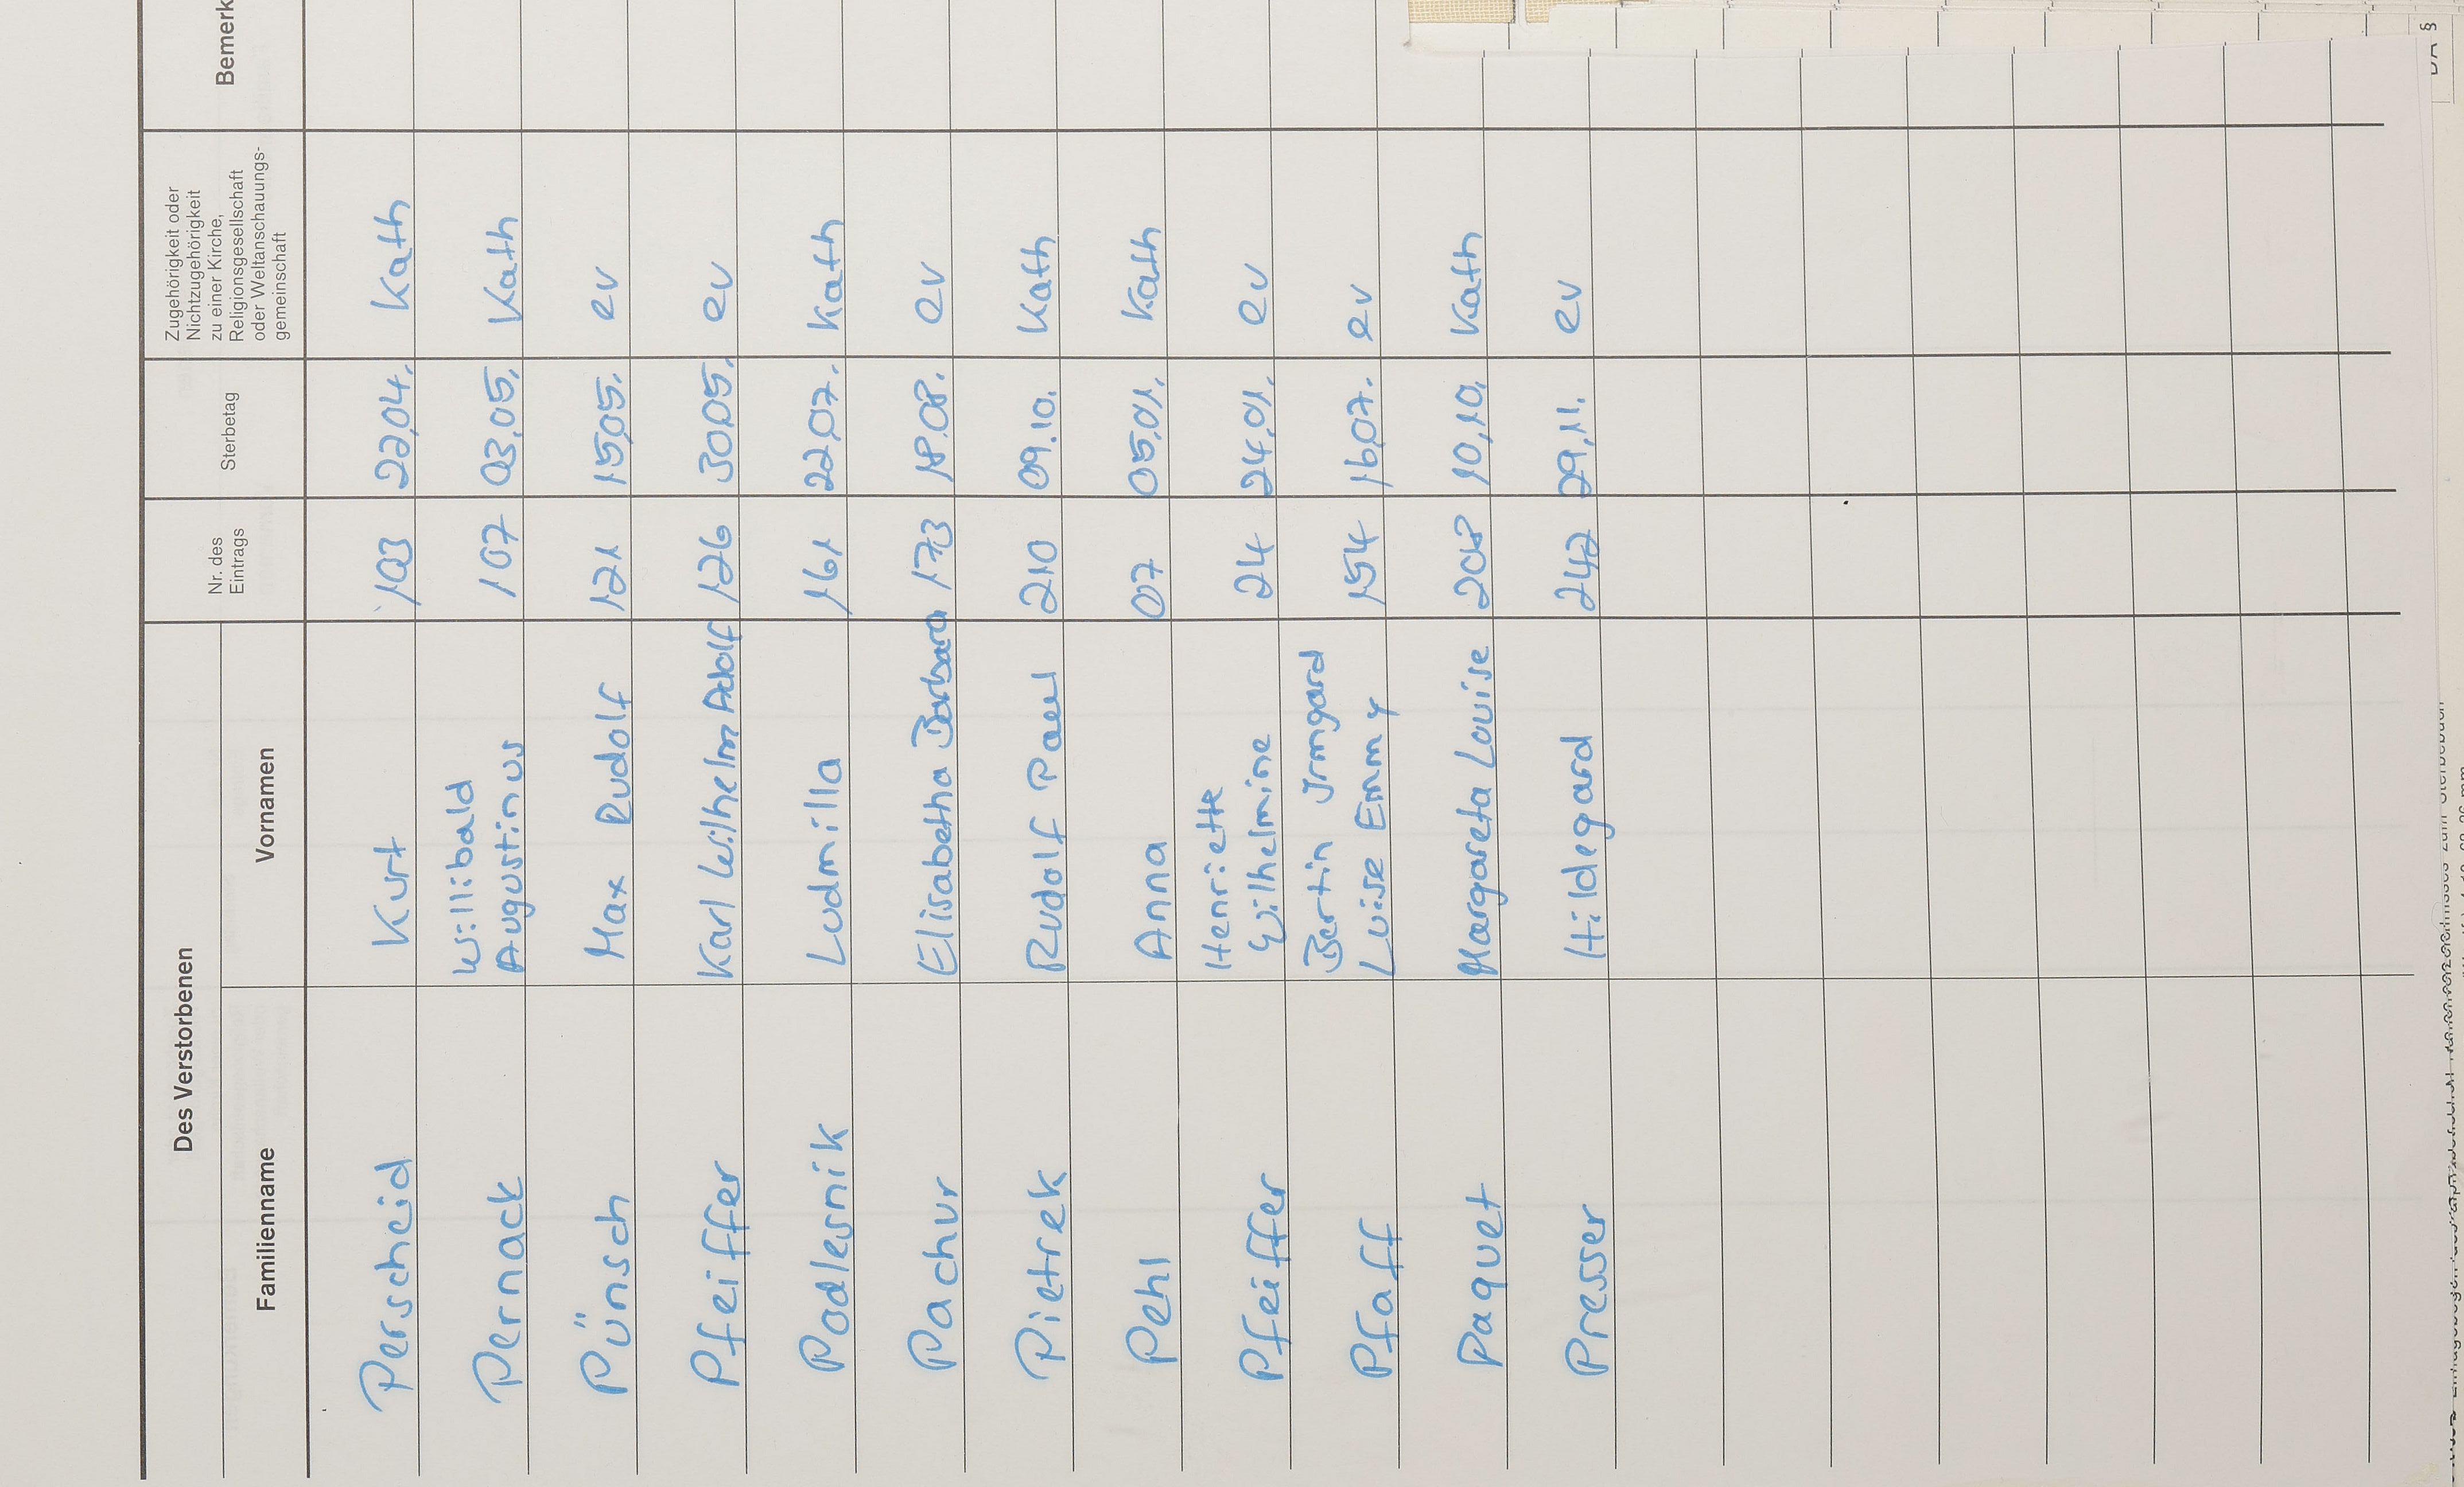 Des Verstorbenen
Familienname Vornamen Nr. des Eintrags Sterbetag Zugehörigkeit oder Nichtzugehörigkeit zu einer Kirche, Religionsgesellschaft oder Weltanschauungs-gemeinschaft Bemerk
Perscheid Kurt 103 22.04. Kath
Pernack Willibald Augustinus 107 03.05. Kath
Pünsch Max Rudolf 121 15.05. ev
Pfeiffer Karl Wilhelm Adolf 126 30.05. ev
Podlesnik Ludmilla 161 22.07. Kath
Pachur Elisabetha Barbara 173 18.08. ev
Pietrek Rudolf Paul 210 09.10. Kath
Pehl Anna 07 05.01. Kath
Pfeiffer Henriette Wilhelmine 24 24.01. ev
Pfaff Bertin Irmgard Luise Emmy 154 16.07. ev
Paquet Margareta Louise 208 10.10. Kath
Presser Hildegard 242 29.11. ev